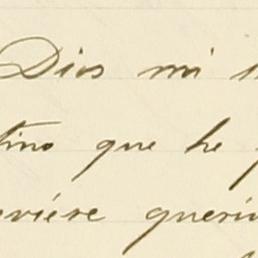 Dios mi
tino que he
viére queri